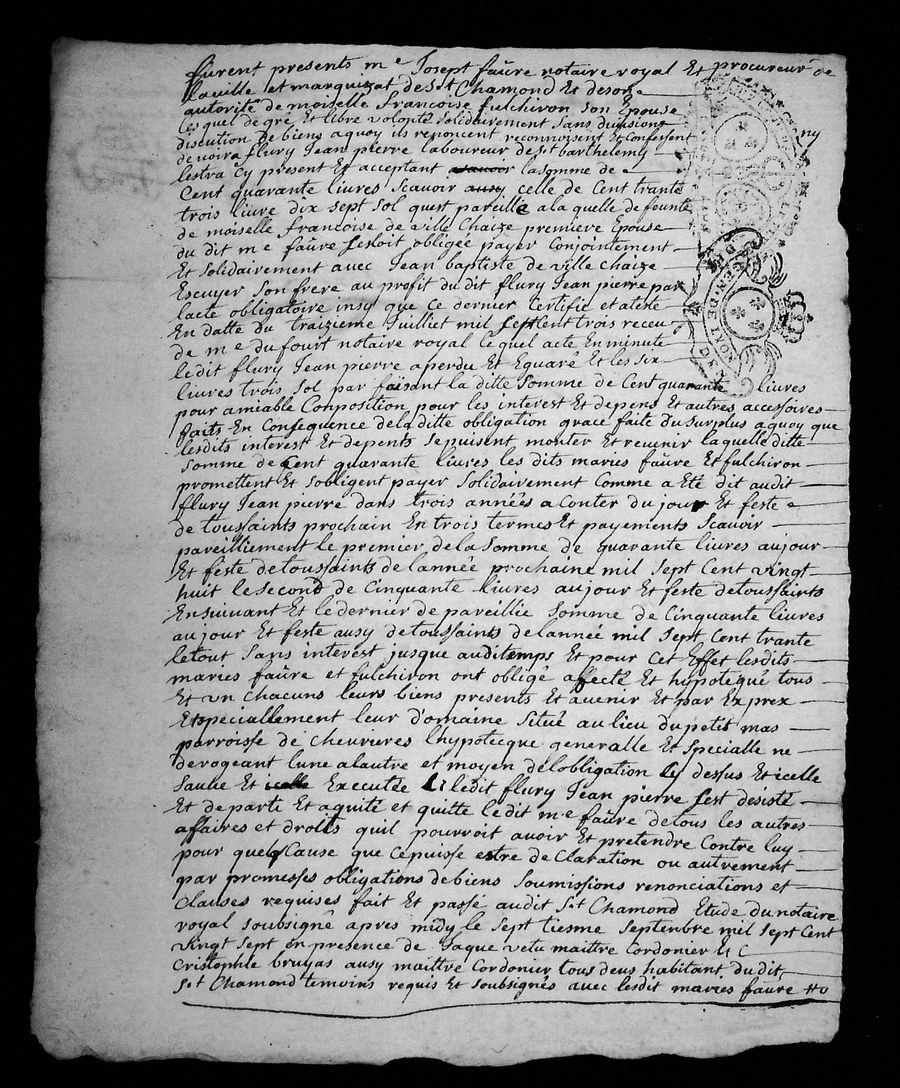 furent presents m e Josept faûre notaire royal Et procureur de
laville et marquizat de St Chamond Et de son
autorité de moiselle francoise fulchiron Son Epouse
lesquel de gré Et libre volonté Solidairement Sans division
discution de biens a quoy ils renoncent reconnoisent Et Confessent
devoir a flury Jean pierre laboureur de st barthelemy
lestra Cy present Et acceptant la somme de
Cent quarante livres Scavoir celle de Cent trante
trois livre dix sept Sol quest pareille a la quelle defeunte
de moiselle francoise de ville Chaize premiere Epouse
du dit m e faûre sestoit obligée payer Conjointement
Et Solidairement avec Jean baptiste de ville chaize
Escuyer Son frere au profit du dit flury Jean pierre par
lacte obligatoire insy que Ce dernier Certifie et ateste
En datte du traizieme Juilliet mil sept Cent trois receu
de m e du fourt notaire royal le quel acte En minute
le dit flury Jean pierre a perdu Et Egaré Et les six
livres trois Sol par faisant la ditte Somme de Cent quarante livres
pour amèable Conposition pour les interest Et depens Et autres accessoires
faits En Consequence de la ditte obligation grace faite du Surplus a quoy que
lesdits interest Et depents Se puisent monter Et revenir la quelle ditte
Somme de Cent quarante livres les dits maries faûre Et fulchiron
promettent Et sobligent payer Solidairement Comme a Eté dit audit
flury Jean pierre dans trois années a Conter du jour Et feste
de toussaints prochain En trois termes Et payements Scavoir
pareilliement le premier de la Somme de quarante livres au jour
Et feste de toussaints de lannée prochaine mil Sept Cent vingt
huit le Second de Cinquante livres au jour Et feste de toussaints
Ensuivant Et le dernier de pareillie Somme de Cinquante livres
au jour Et feste ausy de toussaints de lannée mil Sept Cent trante
le tout Sans interest jusque audit temps Et pour Cet Effet lesdits
maries faûre et fulchiron ont obligé affecté Et hypotequé tous
Et un chacuns leurs biens presents Et avenir Et par Exprex
Et speciallement leur d'omaine Situé au lieu du petit mas
parroisse de chevrieres lhypotecque generalle Et Specialle ne
derogeant lune a lautre et moyen de lobligation Cy dessus Et icelle
Sauve Et Executée le dit flury Jean pierre sest désisté
Et departi Et aquité et quitte le dit m e faûre de tous les autres
affaires et droits quil pourroit avoir Et pretendre Contre luy
pour quelq Clause que Ce puisse estre declaration ou autrement
par promesses obligations de biens Soumissions renonciations et
Clauses requises fait Et passé audit St Chamond Etude du notaire
royal Soubsigné apres midy le Sept tiesme Septenbre mil Sept Cent
vingt Sept en presence de Jaque vetu maittre Cordonier Et
Cristophle bruyas ausy maittre Cordonier tous deus habitant du dit
St Chamond temoins requis Et Soubsignés avec lesdit maries faûre